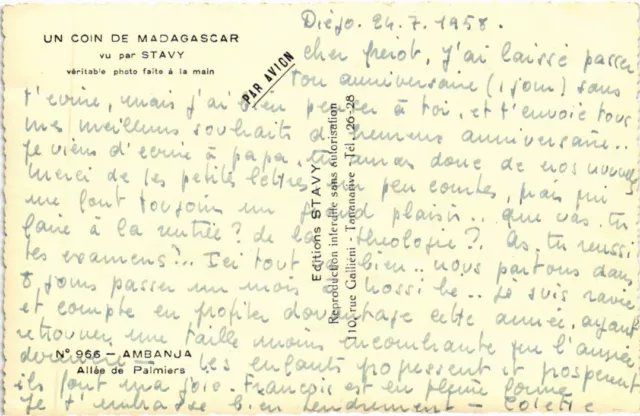 Diégo. 24.7.1958.
UN COIN DE MADAGASCAR
vu par STAVY
véritable photo faite à la main
PAR AVION
cher frérot, j'ai laissé passer
ton anniversaire (1 jour) sans
t'écrire, mais j'ai bien penser à toi, et t'envoie tous
mes meilleurs souhaits d'heureux anniversaire..
Je viens d'écrire à papa. tu auras donc de nos nouvelles
Merci de tes petites lettres un peu courtes, mais qui
me font toujours un grand plaisir.. que vas. tu
faire à la rentrée? de la théologie?. As. tu reussi
tes examens?.. Ici tout va bien.. nous partons dans
8 jours passer un mois à Nossi be.. Je suis ravie
et compte en profiter davantage cette année, ayant
retrouver une taille moins encombrante que l'année
dernière — Les enfants progressent et prospèrent
ils font ma joie. François est en pleine forme
Je t'embrasse bien tendrement — Colette
Editions STAVY
Reproduction interdite sans autorisation
110, rue Galliéni - Tananarive - Tél. 26-28
N° 966 — AMBANJA
Allée de Palmiers